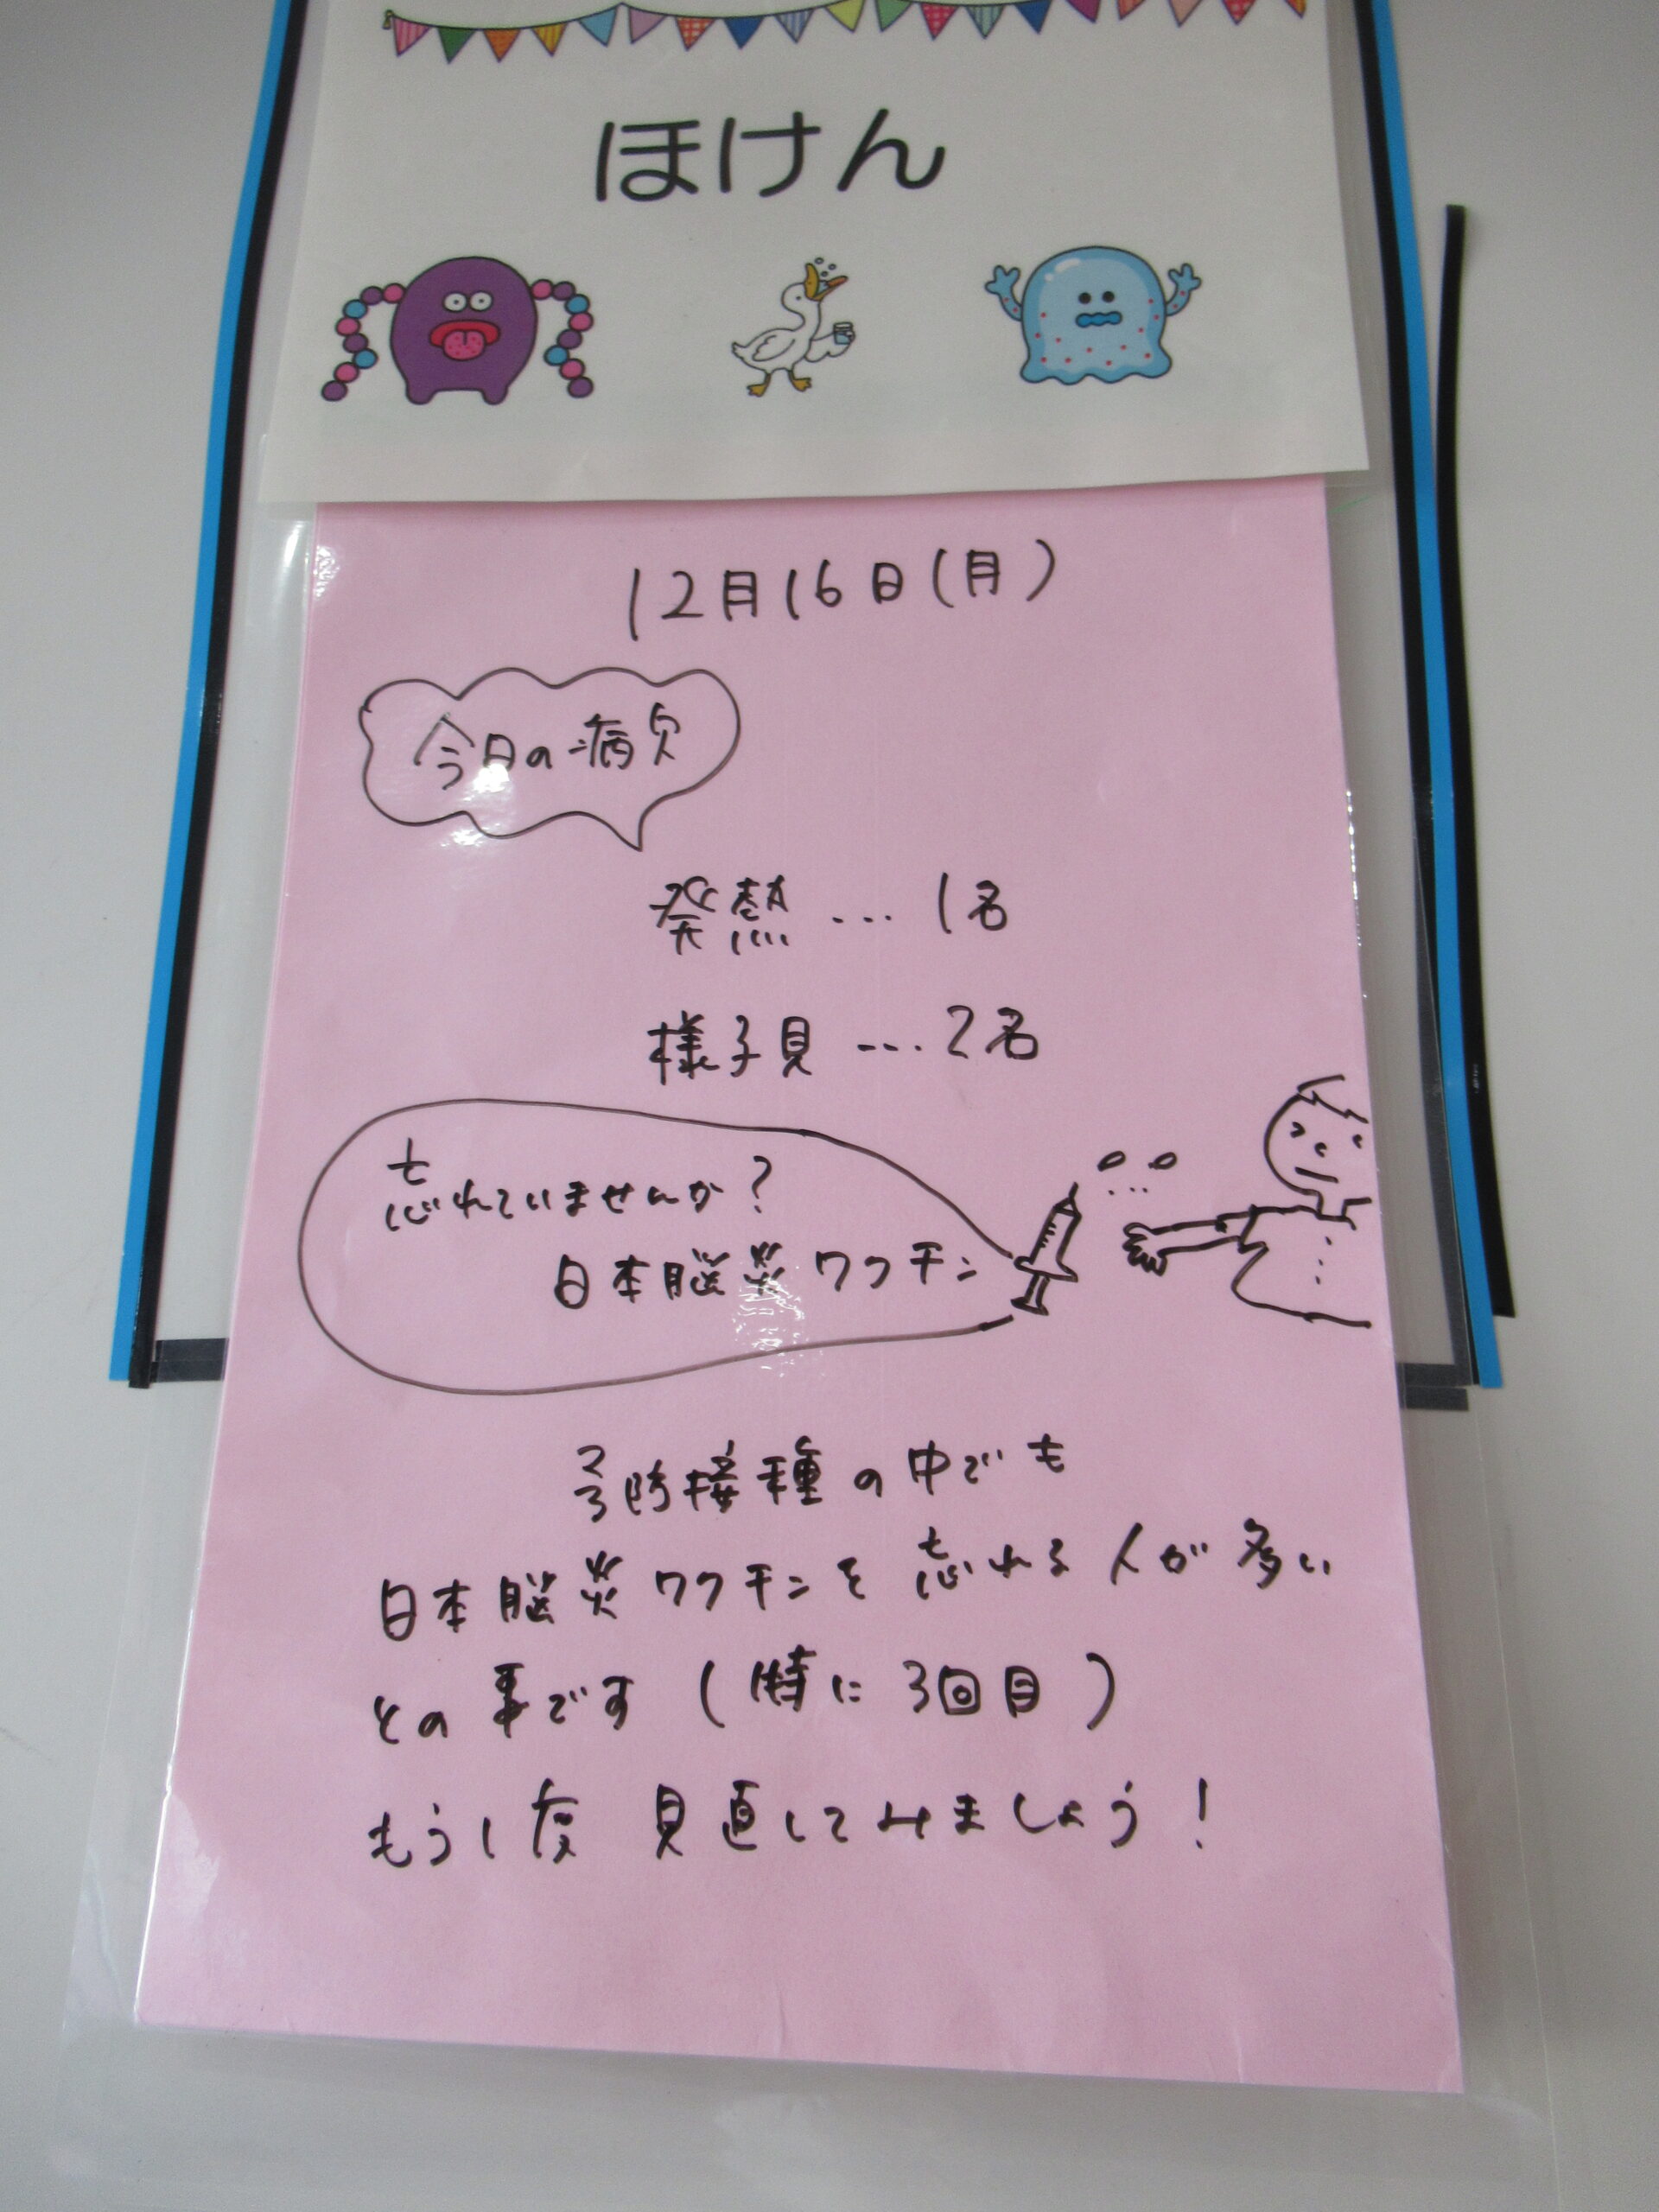 ほけん
12月16日(月)
今日の病欠
発熱…1名
様子見…2名
忘れていませんか?
日本脳炎ワクチン
予防接種の中でも
日本脳炎ワクチンを忘れる人が多い
との事です(特に3回目)
もう1度 見直してみましょう!